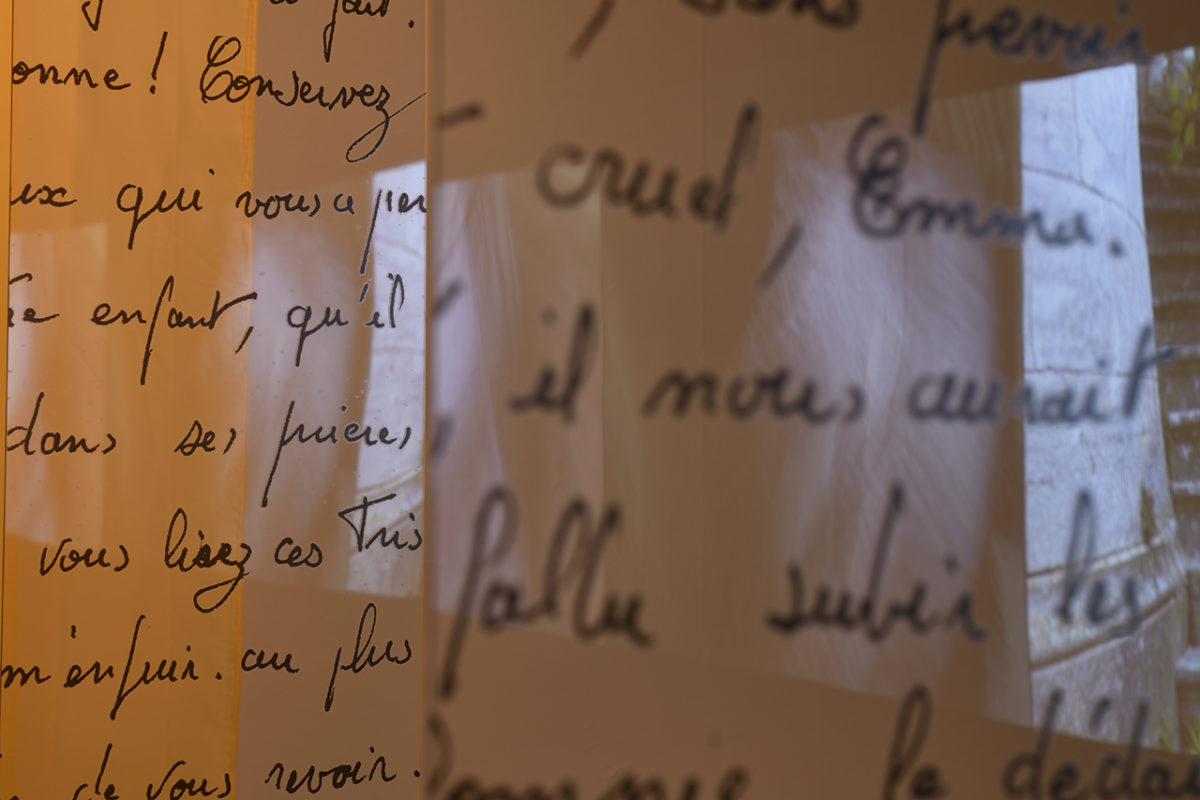 fait.
onne ! Conservez
ux qui vous a per
enfant, qu'il
dans ses prières,
vous lisez ces tris
m'enfuir. au plus
de vous revoir.
sans prévoir
cruel, Emma.
il nous aurait
fallu subir les
le dédai